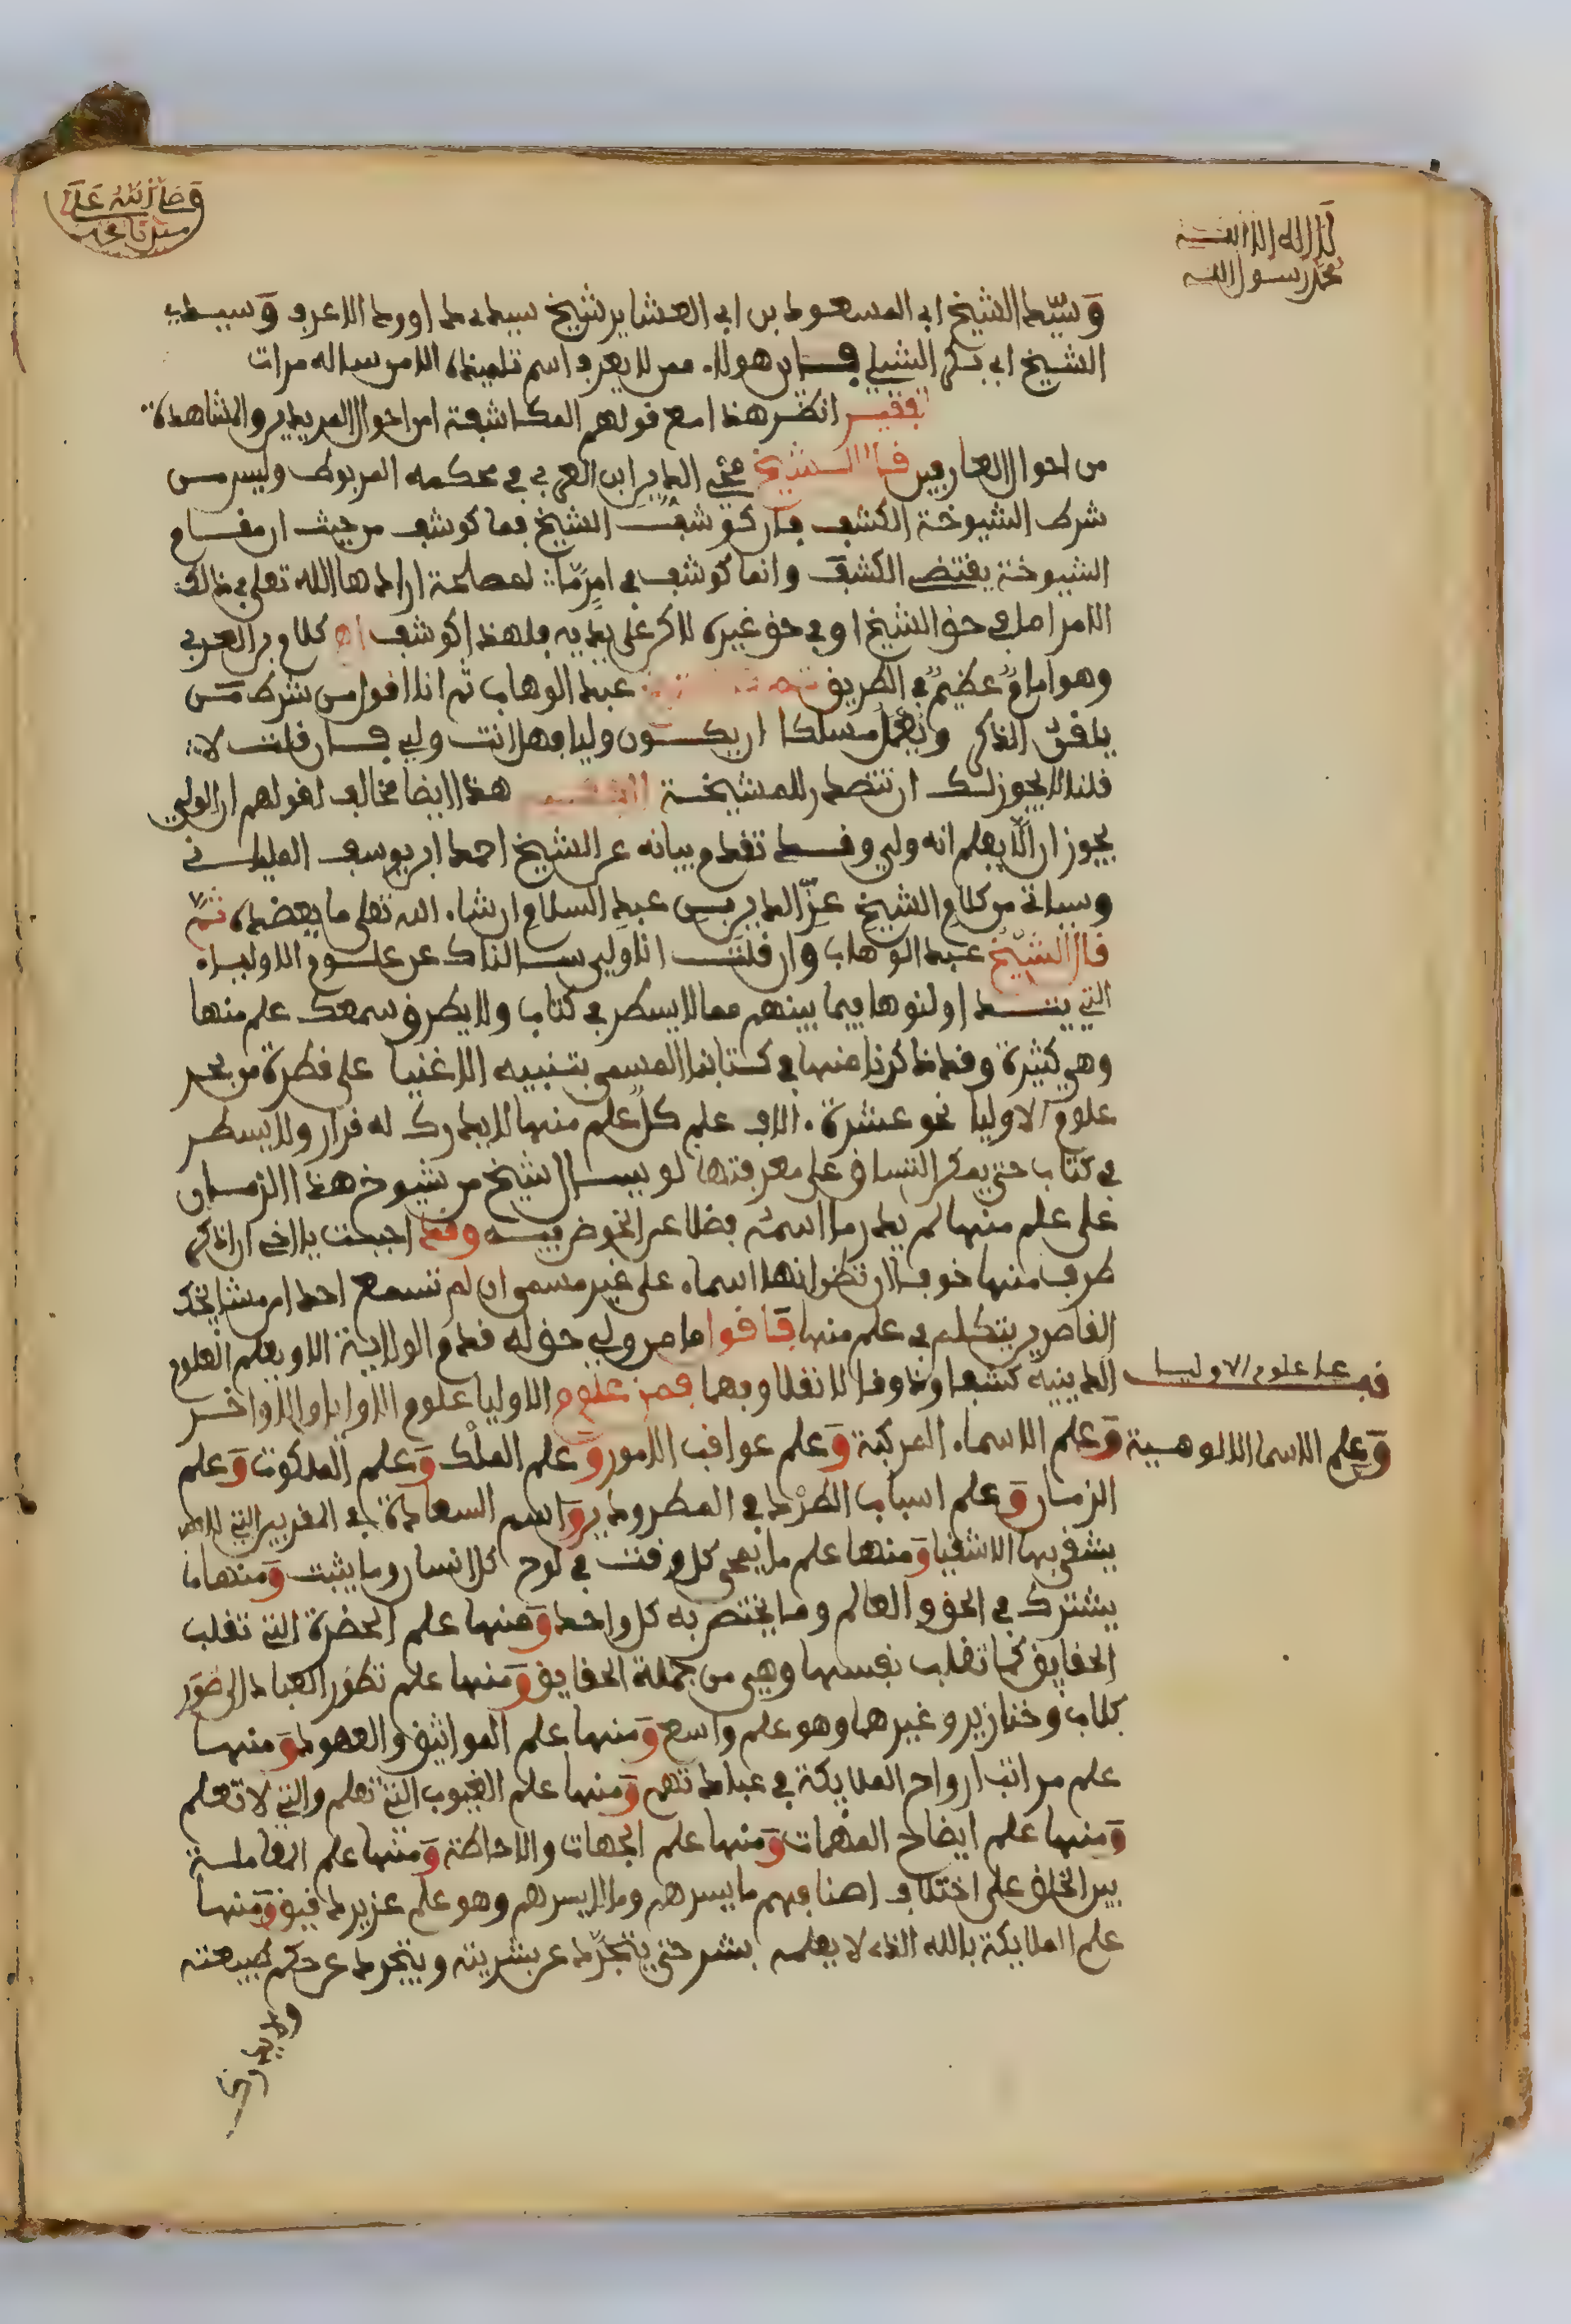 لا اله الا الله
محمد رسول الله
وصلى الله على
سيدنا محمد
وسيد الشيخ ابي السعود بن ابي العشاير شيخ سيدي داوود الاعرف وسيدي
الشيخ ابي بكر الشبلي فان هولاء ممن لا يعرف اسم تلميذه الا من ساله مرات
انظر هذا مع قولهم المكاشفة من احوال المريدين والمشاهدة
من احوال العارفين قال الشيخ محي الدين ابن العربي في محكمه المربوط وليس من
شرط الشيوخة الكشف فان كوشف الشيخ فما كوشف من حيث ان مقام
الشيوخة يقتضي الكشف وانما كوشف في امر ما لمصلحة ارادها الله تعلى في ذلك
الامر اما في حق الشيخ او في حق غيره لاكن على يديه فلهذا كوشف اه كلام بن العربي
وهو امام عظيم في الطريق عبد الوهاب ثم انا اقول من شرط من
يلقن الذكر ويعمل مسلكا ان يكون وليا فهل انت ولي فان قلت لا
قلنا لا يجوز لك ان تتصدر للمشيخة هذا ايضا مخالف لقولهم ان الولي
يجوز ان لا يعلم انه ولي وقد تقدم بيانه عن الشيخ احمد ابن يوسف الملياني
وسياتي من كلام الشيخ عز الدين بن عبد السلام ان شاء الله تعلى ما يعضده ثم
قال الشيخ عبد الوهاب وان قلت انا ولي سالناك عن علوم الاولياء
التي يتداولونها فيما بينهم مما لا يسطر في كتاب ولا يطرق سمعك علم منها
وهي كثيرة وقد ذكرنا منها في كتابنا المسمى بتنبيه الاغنيا على قطرة من بحر
علوم الاوليا نحو عشرة الاف علم كل علم منها لا يدرك له قرار ولا يسطر
في كتاب حتى يمكن التسلق على معرفتها لو يسال شيخ من شيوخ هذا الزمان
على علم منها لم يدر ما اسمه فضلا عن الخوض فيه وقد احببت يا اخي ان اذكر
طرف منها خوفا ان تظن انها اسماء على غير مسمى ان لم تسمع احدا من مشايخك
القاصرين يتكلم في علم منها فاقول ما من ولي حق له قدم الولاية الا ويعلم العلوم
الدينية كشفا وذوقا لا نقلا وفهما فمن علوم الاوليا علوم الاوايل والاواخر
قف على علوم الاوليا
وعلم الاسما الالوهية وعلم الاسماء المركبة وعلم عواقب الامور وعلم الملك وعلم الملكوت وعلم
الزمان وعلم اسباب الطرد في المطرودين واسم السعادة في المقربين التي
يشقى بها الاشقيا ومنها علم ما يمحى كل وقت في لوح كل انسان وما يثبت ومنها ما
يشترك في الحق والعالم وما يختص به كل واحد ومنها علم الحضرة التي تقلب
الحقايق كما تقلب نفسها وهي من جملة الحقايق ومنها علم تطور العباد الى صور
كلاب وخنازير وغيرهما وهو علم واسع ومنها علم المواثيق والعهود ومنها
علم مراتب ارواح الملايكة في عباداتهم ومنها علم الغيوب التي تعلم والتي لا تعلم
ومنها علم ايضاح المبهمات ومنها علم الجهات والاحاطة ومنها علم المعاملة
بين الخلق على اختلاف اصنافهم ما يسرهم وما لا يسرهم وهو علم عزيز دقيق ومنها
علم الملايكة بالله الذي لا يعلمه بشر حتى يتجرد عن بشريته ويتجرد عن حكم طبيعته